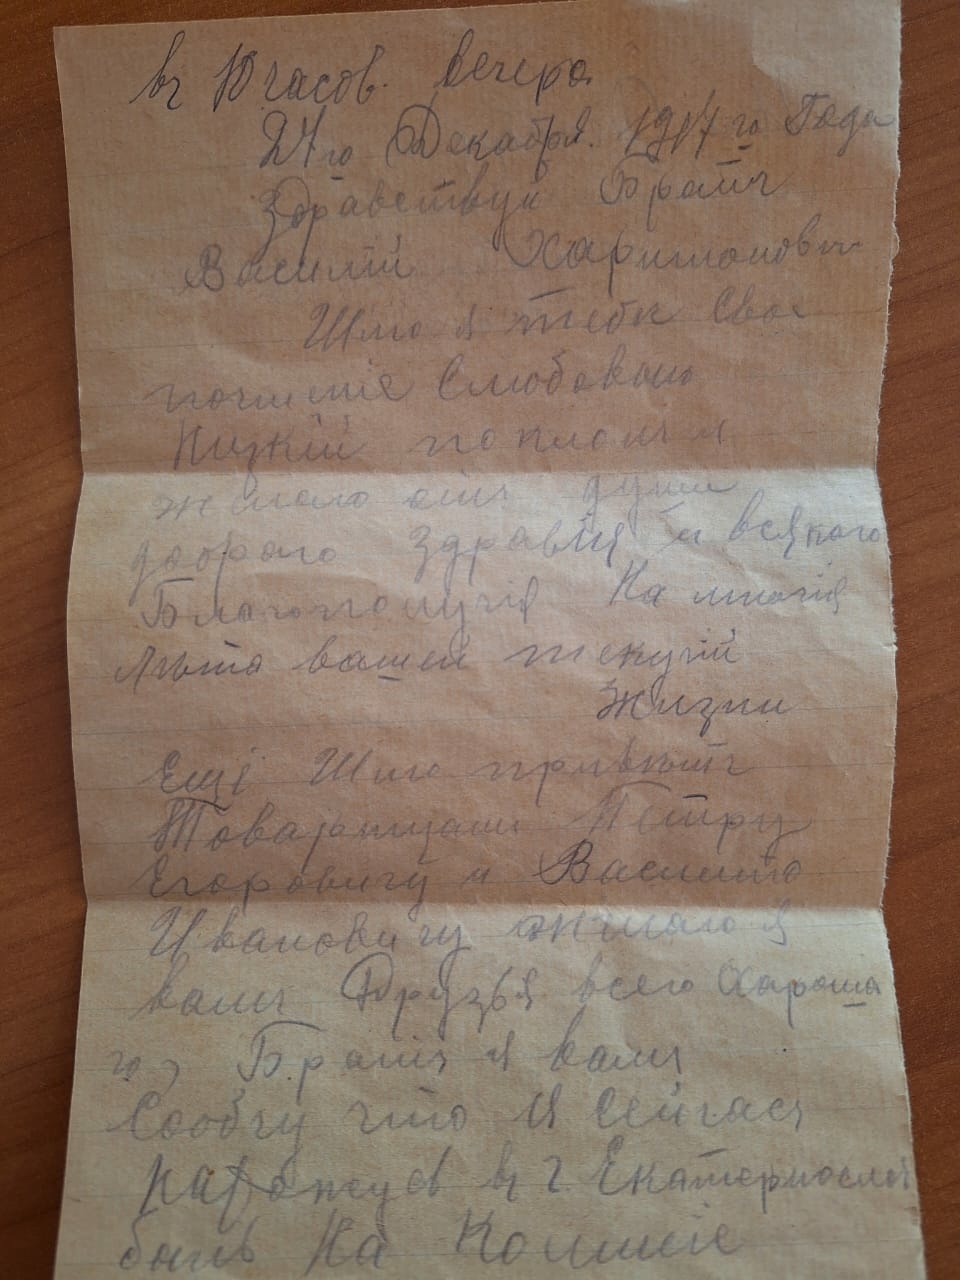 въ 10 часов. вечера
27го Декабря. 1917го Года
Здравствуй Братъ
Василій Харитонович
Шлю я тебе Свое
почитніе Слюбовью
Низкій поклонъ я
желаю отъ души
доброго здравія и всякаго
Благополучія На многія
лѣта вашей текучій
Жизни
Ещі Шлю привѣтъ
Товарищам Петру
Егоровичу и Василию
Ивановичу жилаю я
вамъ Друзья всего Хароша
го, Братъ я вамъ
Сообчу что я Сейчасъ
нахожусь въ г. Екатеринослав
былъ На